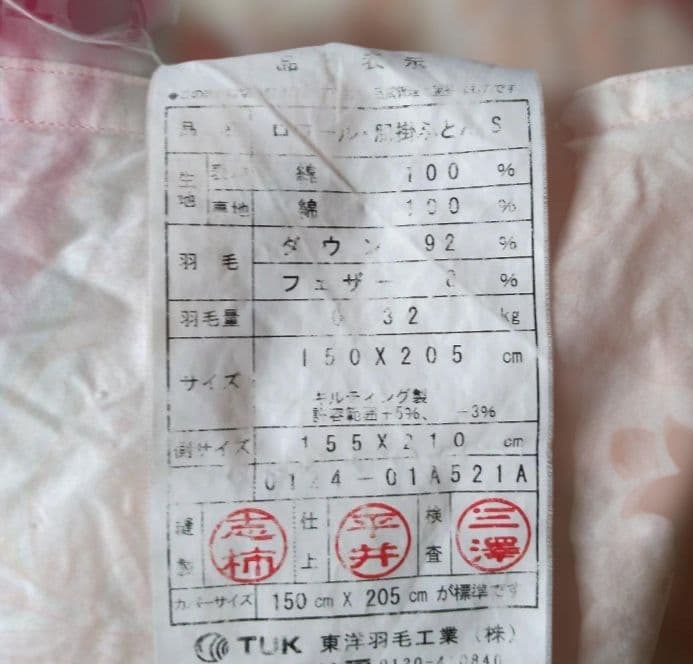 品 表示
品 ロ ール・肌掛ふとん S
生地 表地 綿 100 %
裏地 綿 100 %
羽毛 ダウン 92 %
フェザー 8 %
羽毛量 0 32 kg
サイズ 150X205 cm
キルティング製
許容範囲+5%、 -3%
側サイズ 155X210 cm
01 4-01A521A
縫製 志柿 仕上 平井 検査 三澤
カバーサイズ 150cm X 205cmが標準です
TUK 東洋羽毛工業(株)